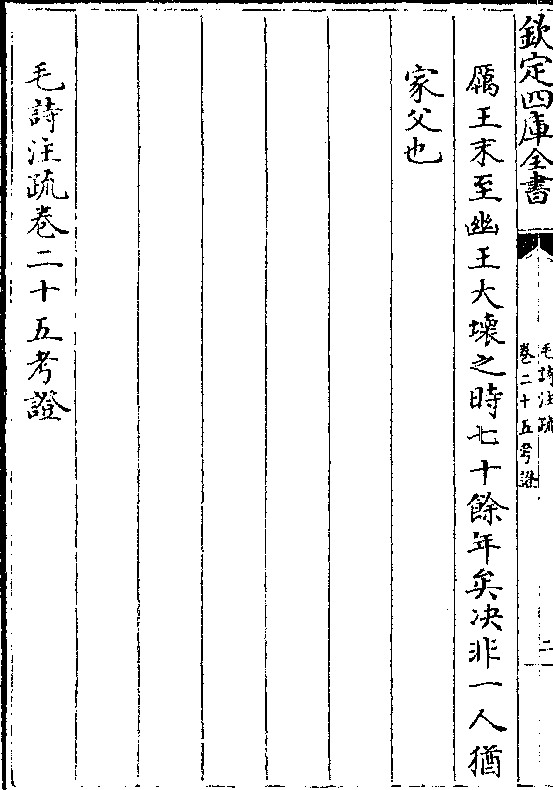 欽定四庫全書
毛詩注疏
卷二十五考證
二
厲王末至幽王大壊之時七十餘年矣决非一人猶
家父也
毛詩注疏卷二十五考證